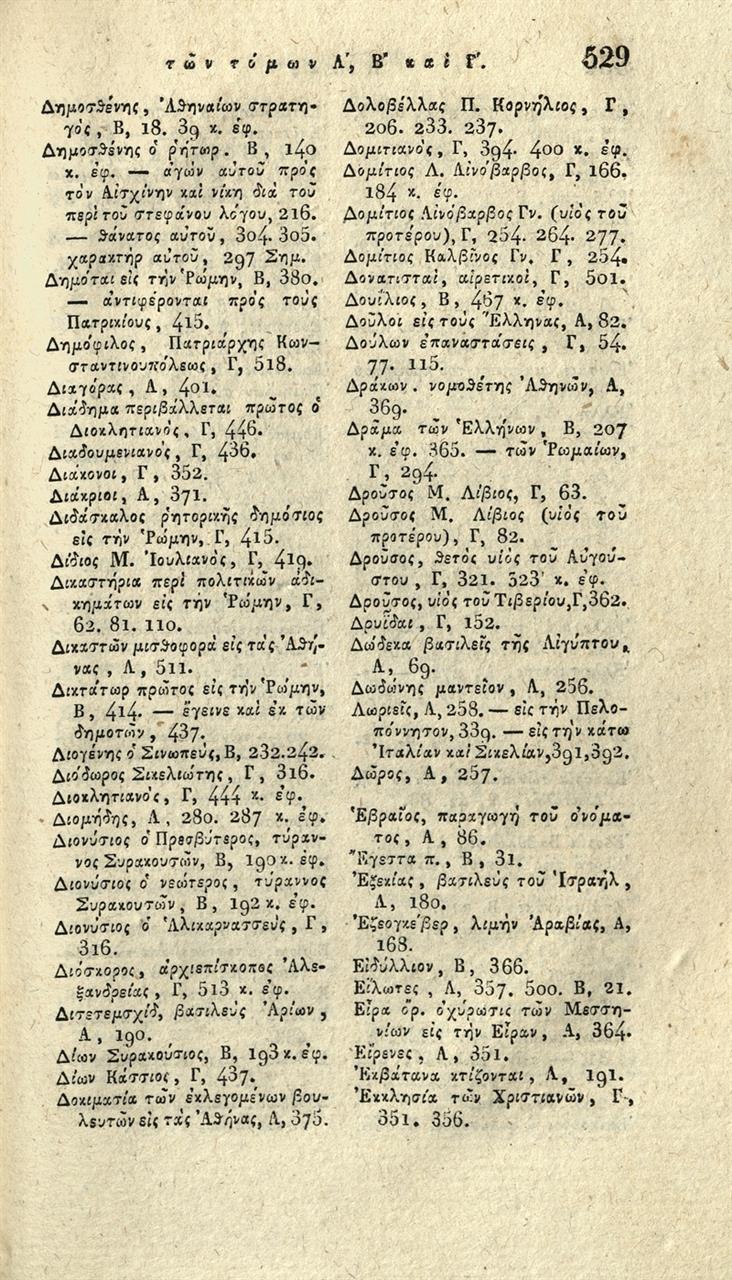 τῶν τόμων Α', Β' καὶ Γ'.
529
Δημοσθένης, Ἀθηναίων στρατη-
γός, Β, 18. 39 κ. ἑφ.
Δημοσθένης ὁ ῥήτωρ. Β, 140
κ. ἑφ. — ἀγὼν αὐτοῦ πρὸς
τὸν Αἰσχίνην καὶ νίκη διὰ τοῦ
περὶ τοῦ στεφάνου λόγου, 216.
— θάνατος αὐτοῦ, 304. 305.
χαρακτὴρ αὐτοῦ, 297 Σημ.
Δημόται εἰς τὴν Ῥώμην, Β, 380.
— ἀντιφέρονται πρὸς τοὺς
Πατρικίους, 415.
Δημόφιλος, Πατριάρχης Κων-
σταντινουπόλεως, Γ, 518.
Διαγόρας, Α, 401.
Διάδημα περιβάλλεται πρῶτος ὁ
Διοκλητιανός, Γ, 446.
Διαδουμενιανός, Γ, 436.
Διάκονοι, Γ, 352.
Διάκριοι, Α, 371.
Διδάσκαλος ῥητορικῆς δημόσιος
εἰς τὴν Ῥώμην, Γ, 415.
Δίδιος Μ. Ἰουλιανός, Γ, 419.
Δικαστήρια περὶ πολιτικῶν ἀδι-
κημάτων εἰς τὴν Ῥώμην, Γ,
62. 81. 110.
Δικαστῶν μισθοφορὰ εἰς τὰς Ἀθή-
νας, Α, 511.
Δικτάτωρ πρῶτος εἰς τὴν Ῥώμην,
Β, 414. — ἔγεινε καὶ ἐκ τῶν
δημοτῶν, 437.
Διογένης ὁ Σινωπεύς, Β, 232. 242.
Διόδωρος Σικελιώτης, Γ, 316.
Διοκλητιανός, Γ, 444 κ. ἑφ.
Διομήδης, Α, 280. 287 κ. ἑφ.
Διονύσιος ὁ Πρεσβύτερος, τύραν-
νος Συρακουσῶν, Β, 190 κ. ἑφ.
Διονύσιος ὁ νεώτερος, τύραννος
Συρακουσῶν, Β, 192 κ. ἑφ.
Διονύσιος ὁ Ἁλικαρνασσεύς, Γ,
316.
Διόσκορος, ἀρχιεπίσκοπος Ἀλε-
ξανδρείας, Γ, 513 κ. ἑφ.
Διτετεμσχίδ, βασιλεὺς Ἀρίων,
Α, 190.
Δίων Συρακούσιος, Β, 193 κ. ἑφ.
Δίων Κάσσιος, Γ, 437.
Δοκιμασία τῶν ἐκλεγομένων βου-
λευτῶν εἰς τὰς Ἀθήνας, Α, 375.
Δολοβέλλας Π. Κορνήλιος, Γ,
206. 233. 237.
Δομιτιανός, Γ, 394. 400 κ. ἑφ.
Δομίτιος Λ. Αἰνόβαρβος, Γ, 166.
184 κ. ἑφ.
Δομίτιος Αἰνόβαρβος Γν. (υἱὸς τοῦ
προτέρου), Γ, 254. 264. 277.
Δομίτιος Καλβῖνος Γν. Γ, 254.
Δονατισταί, αἱρετικοί, Γ, 501.
Δουίλιος, Β, 467 κ. ἑφ.
Δοῦλοι εἰς τοὺς Ἕλληνας, Α, 82.
Δούλων ἐπαναστάσεις, Γ, 54.
77. 115.
Δράκων. νομοθέτης Ἀθηνῶν, Α,
369.
Δρᾶμα τῶν Ἑλλήνων, Β, 207
κ. ἑφ. 365. — τῶν Ῥωμαίων,
Γ, 294.
Δροῦσος Μ. Λίβιος, Γ, 63.
Δροῦσος Μ. Λίβιος (υἱὸς τοῦ
προτέρου), Γ, 82.
Δροῦσος, θετὸς υἱὸς τοῦ Αὐγού-
στου, Γ, 321. 323 κ. ἑφ.
Δροῦσος, υἱὸς τοῦ Τιβερίου, Γ, 362.
Δρυΐδαι, Γ, 152.
Δώδεκα βασιλεῖς τῆς Αἰγύπτου,
Α, 69.
Δωδώνης μαντεῖον, Α, 256.
Δωριεῖς, Α, 258. — εἰς τὴν Πελο-
πόννησον, 339. — εἰς τὴν κάτω
Ἰταλίαν καὶ Σικελίαν, 391, 392.
Δῶρος, Α, 257.
Ἑβραῖος, παραγωγὴ τοῦ ὀνόμα-
τος, Α, 86.
Ἔγεστα π., Β, 31.
Ἐζεκίας, βασιλεὺς τοῦ Ἰσραήλ,
Α, 180.
Ἐζεογκέβερ, λιμὴν Ἀραβίας, Α,
168.
Εἰδύλλιον, Β, 366.
Εἵλωτες, Α, 357. 500. Β, 21.
Εἶρα ὄρ. ὀχύρωσις τῶν Μεσση-
νίων εἰς τὴν Εἶραν, Α, 364.
Εἴρενες, Α, 351.
Ἐκβάτανα κτίζονται, Α, 191.
Ἐκκλησία τῶν Χριστιανῶν, Γ,
351. 356.